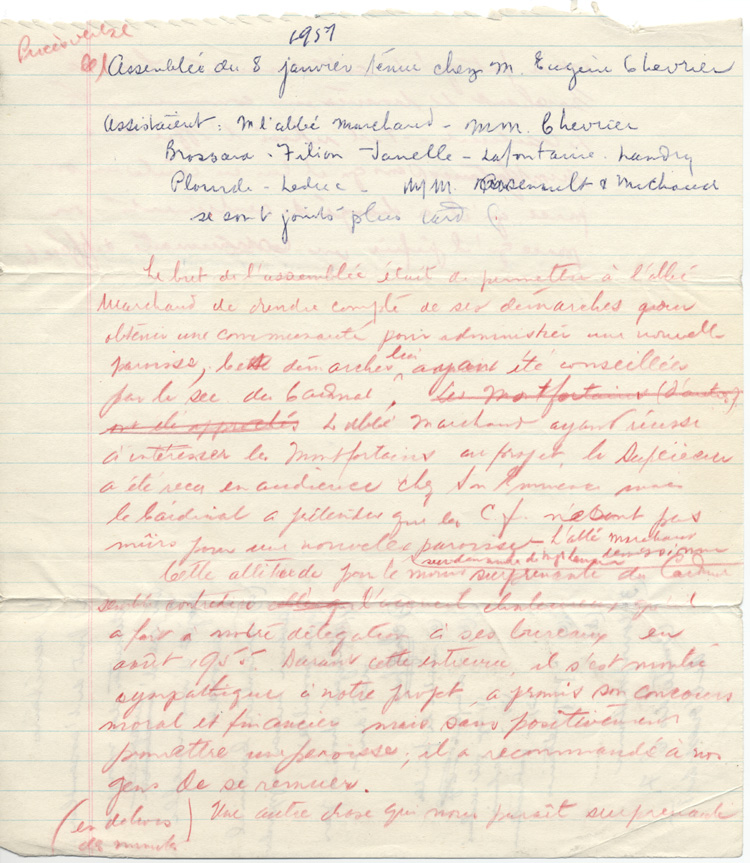 1957
Procès verbal
de l'Assemblée du 8 janvier tenue chez M. Eugène Chevrier
Assistaient: M l'abbé Marchand - MM. Chevrier
Brossard - Filion - Janelle - Lafontaine - Landry
Plourde - Leduc - MM. Arsenault & Michaud
se sont joints plus tard
Le but de l'assemblée était de permettre à l'abbé
Marchand de rendre compte de ses démarches pour
obtenir une communauté pour administrer une nouvelle
paroisse, ces démarches lui ayant été conseillées
par le sec. du Cardinal, les Montfortains
ont été approchés L'abbé Marchand ayant réussi
à intéresser les Montfortains au projet, le Supérieur
a été reçu en audience chez Son Eminence mais
le Cardinal a prétendu que les C.f. n'étaient pas
mûrs pour une nouvelle paroisse - L'abbé Marchand
démissionne
Cette attitude pour le moins surprenante du Cardinal
semble contredire l'accueil chaleureux qu'il
a fait à notre délégation à ses bureaux en
août 1955 Durant cette entrevue, il s'est montré
sympathique à notre projet, a promis son concours
moral et financier mais sans positivement
promettre une paroisse; il a recommandé à nos
gens de se remuer.
(en dehors
de minutes) Une autre chose qui nous paraît surprenante